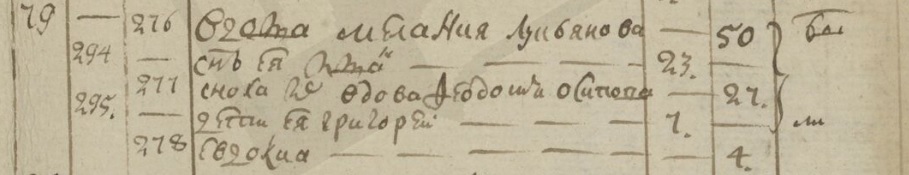 79 — 276 Вдова Мелания Лукьянова — 50 бы
294 — снъ ея — — — 23. —
277 сноха вдова Феодосиа Осипова — 27.
295. — дети ея Григорей — — — 7. — ли
278 Евдокиа — — — — 4.